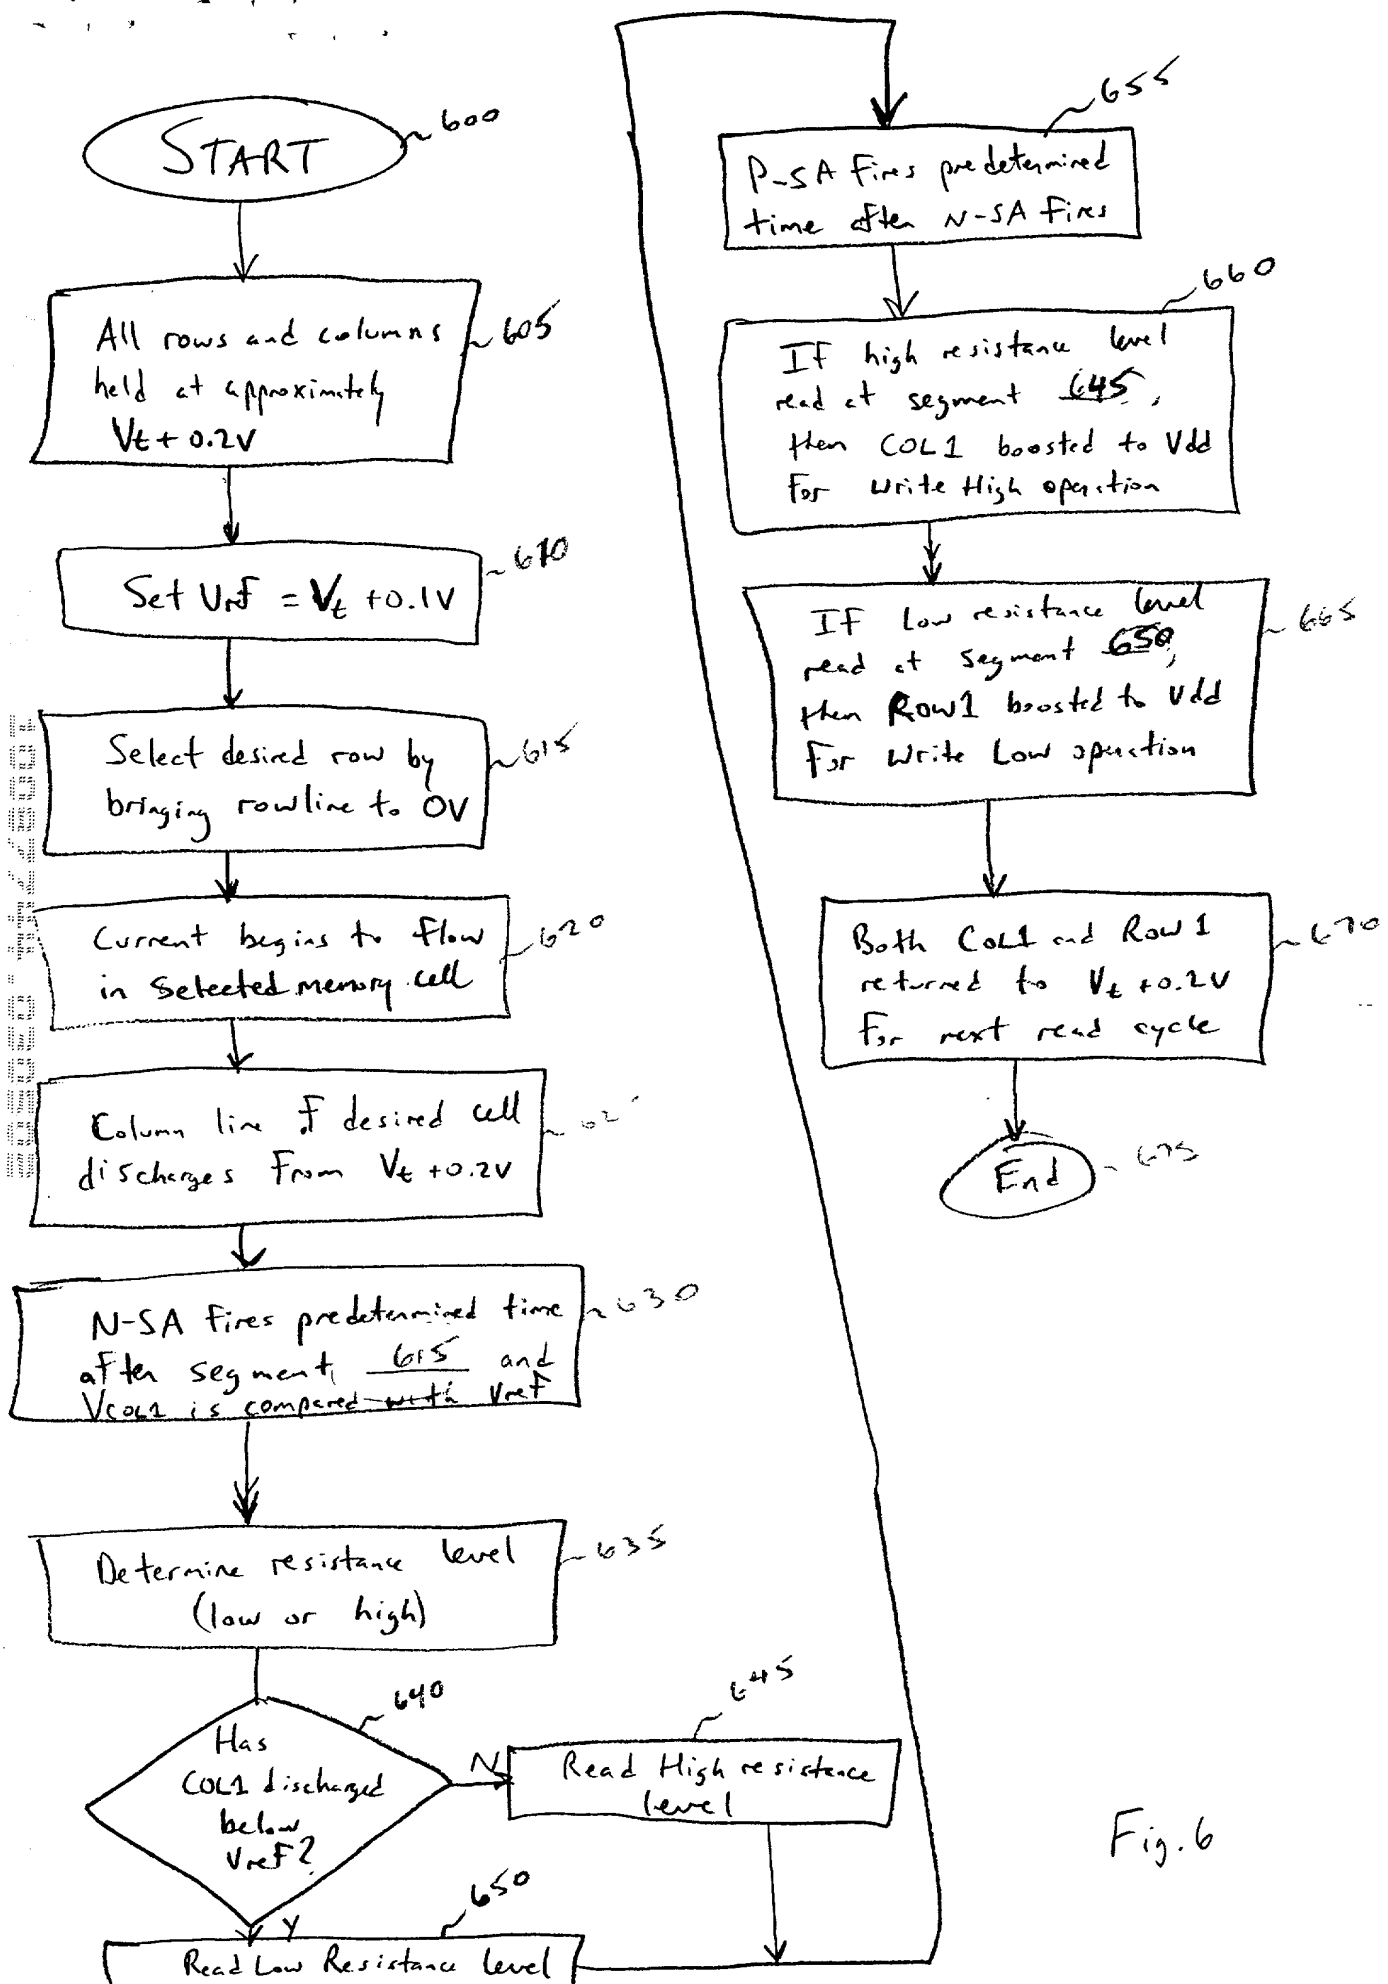 START
600
All rows and columns
held at approximately
Vt + 0.2V
605
Set Vref = Vt + 0.1V
610
Select desired row by
bringing rowline to 0V
615
Current begins to flow
in selected memory cell
620
Column line of desired cell
discharges from Vt + 0.2V
62
N-SA fires predetermined time
after segment 615 and
VCOL1 is compared with Vref
630
Determine resistance level
(low or high)
635
Has
COL1 discharged
below
Vref?
640
N
Read High resistance
level
645
Y
Read Low Resistance level
650
P-SA fires predetermined
time after N-SA fires
655
If high resistance level
read at segment 645,
then COL1 boosted to Vdd
for write High operation
660
If Low resistance level
read at segment 650,
then ROW1 boosted to Vdd
for write Low operation
665
Both COL1 and Row1
returned to Vt + 0.2V
for next read cycle
670
End
675
Fig. 6